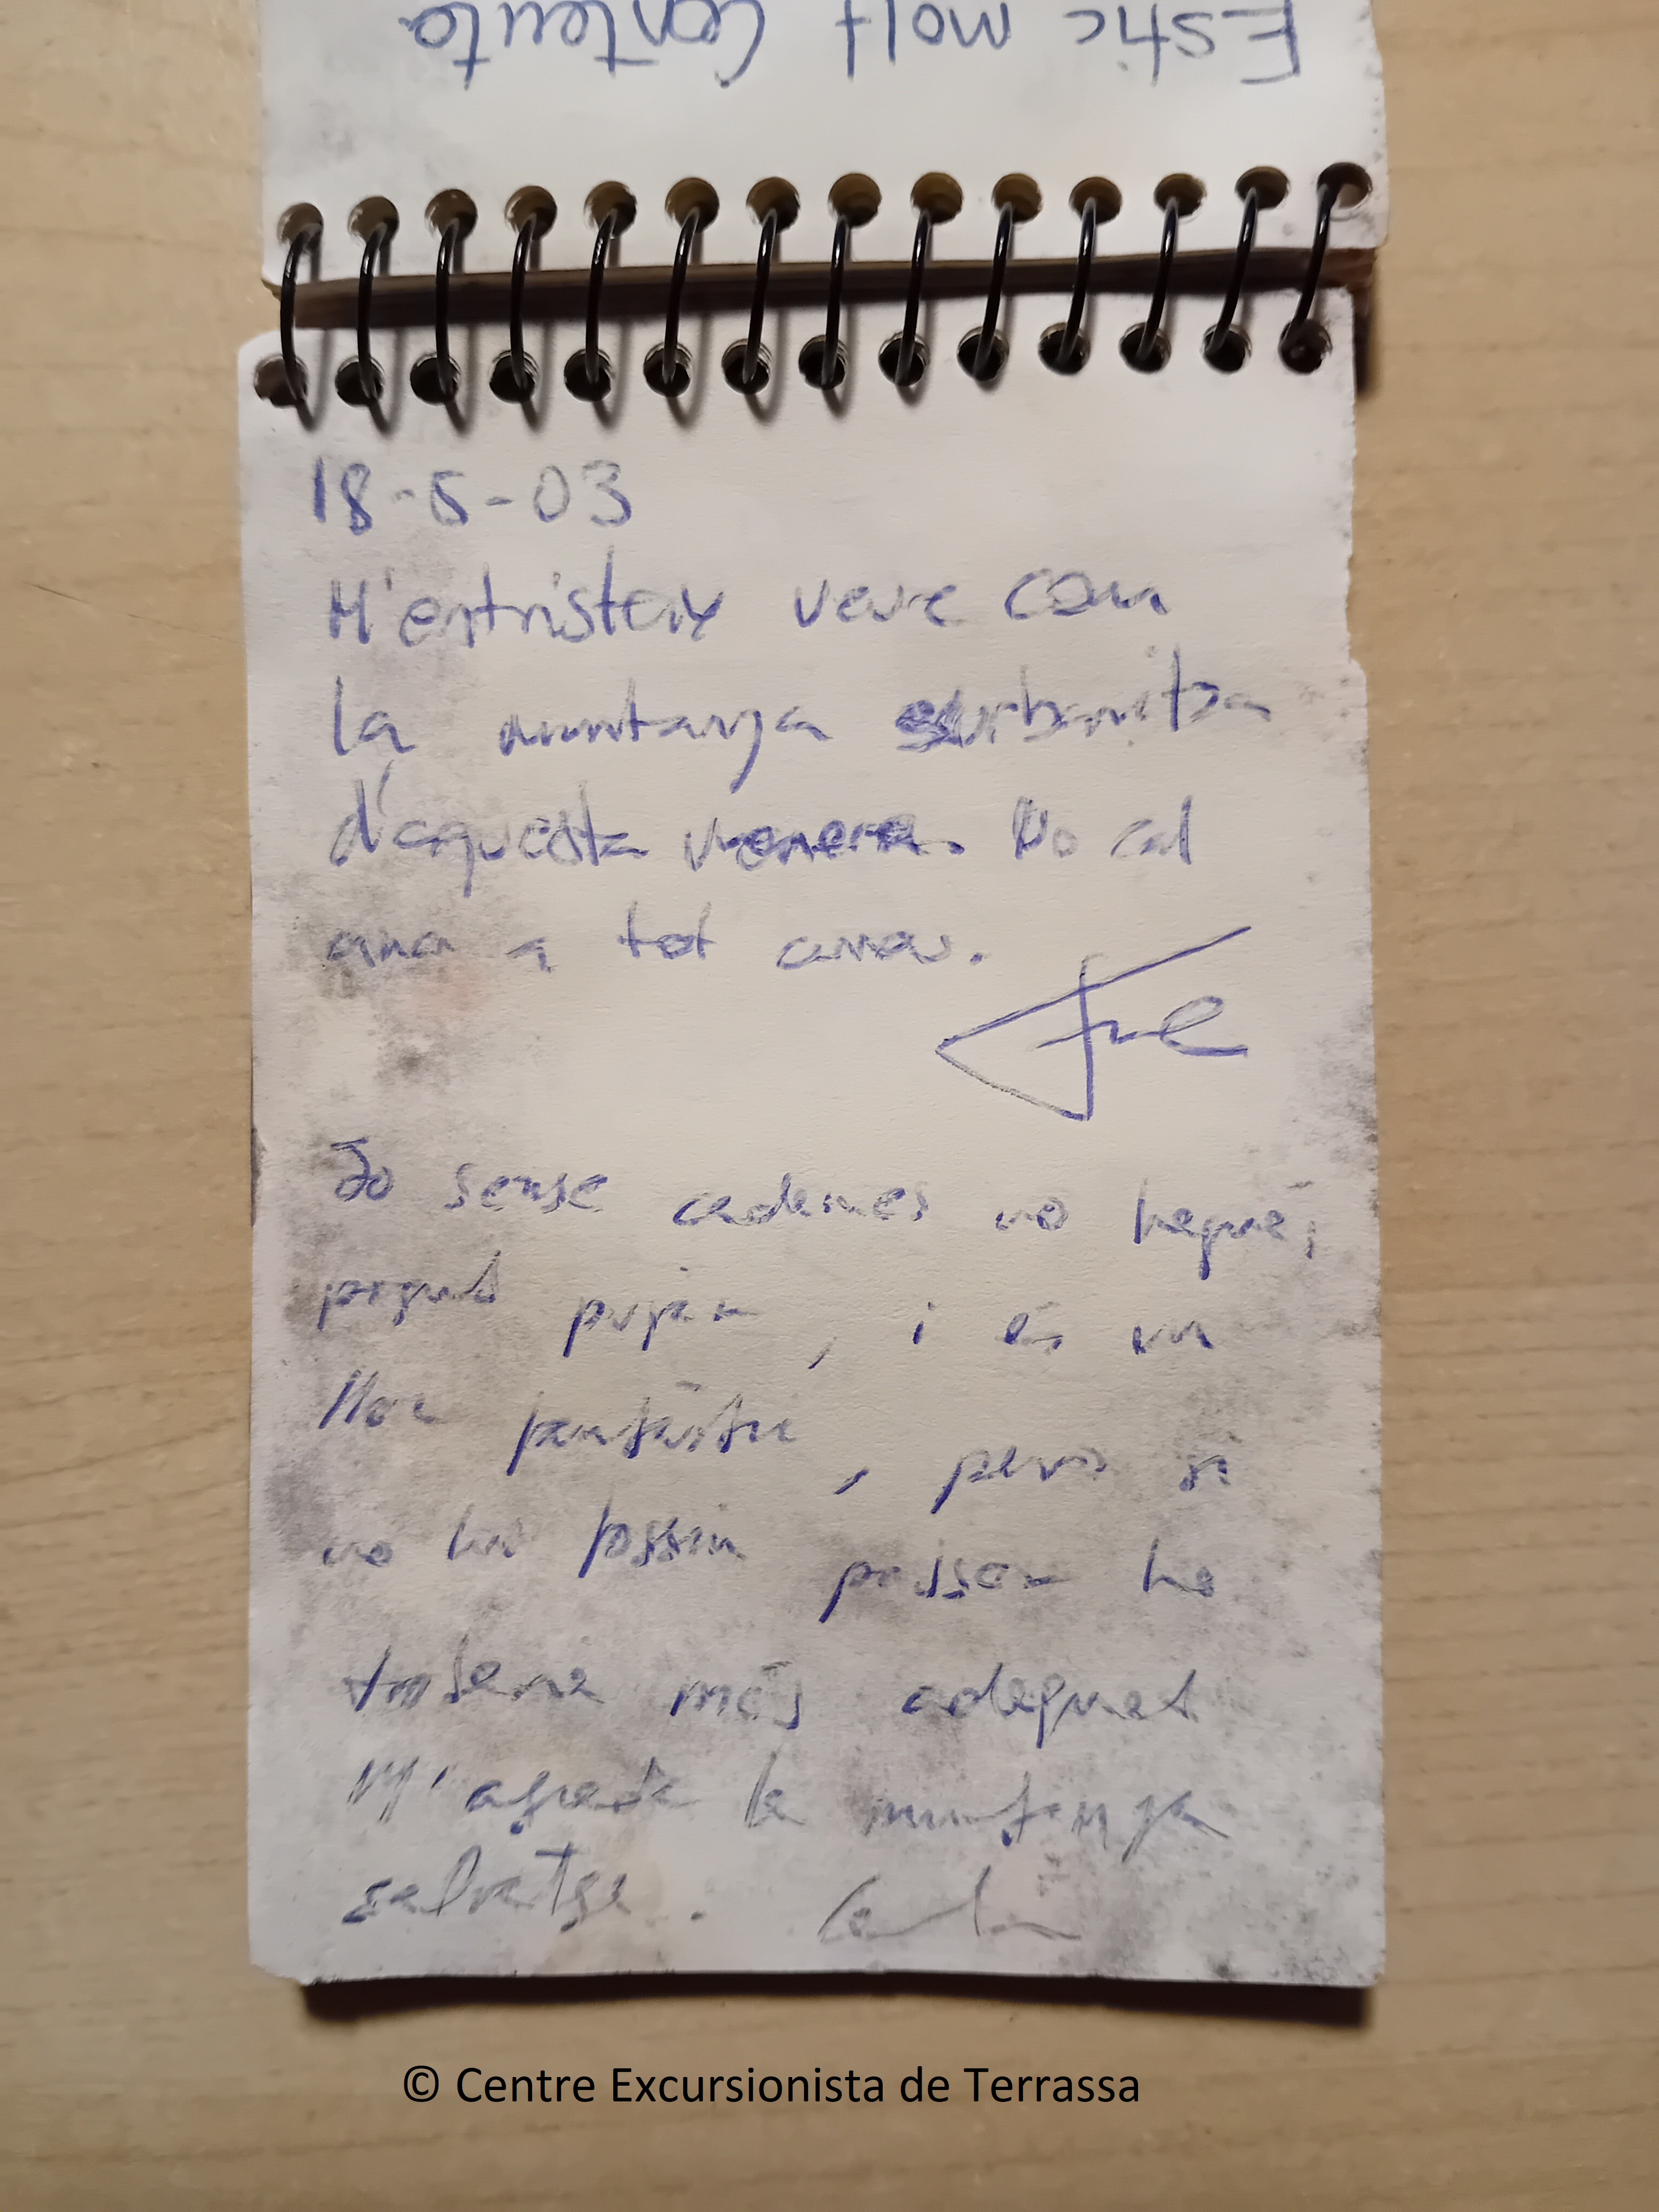 Estic molt contenta
18-5-03
M'entristeix veure com
la muntanya s'urbanitza
d'aquesta manera. No cal
anar a tot arreu.
Jo sense cadenes no hagués
pogut pujar, i és un
lloc fantàstic, però si
no les possin potser ho
trobaria més adequat
M'agrada la muntanya
salvatge.
© Centre Excursionista de Terrassa